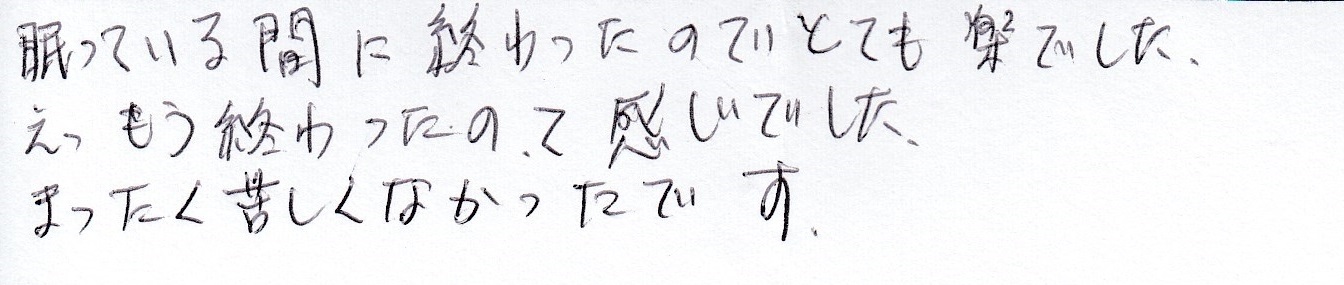 眠っている間に終わったのでとても楽でした、
えっもう終わったの、て感じでした、
まったく苦しくなかったです.